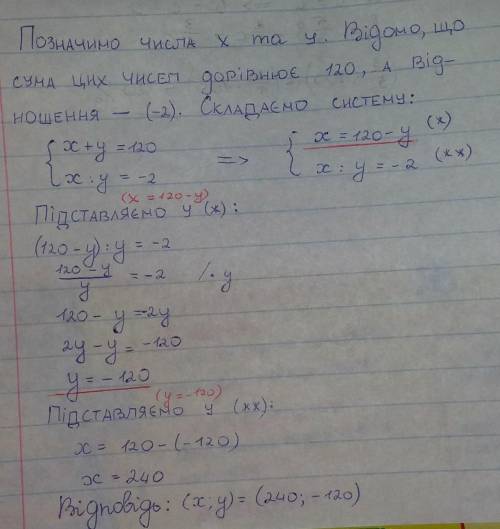 Позначимо числа x та y. Відомо, що
сума цих чисел дорівнює 120, а від-
ношення — (-2). Складаємо систему:
{ x+y = 120 => { x = 120 - y (x)
{ x : y = -2 { x : y = -2 (xx)
(x = 120 - y)
Підставляємо у (x):
(120 - y) : y = -2
120 - y / y = -2 /· y
120 - y = -2y
2y - y = -120
y = -120
(y = -120)
Підставляємо у (xx):
x = 120 - (-120)
x = 240
Відповідь: (x, y) = (240; -120)